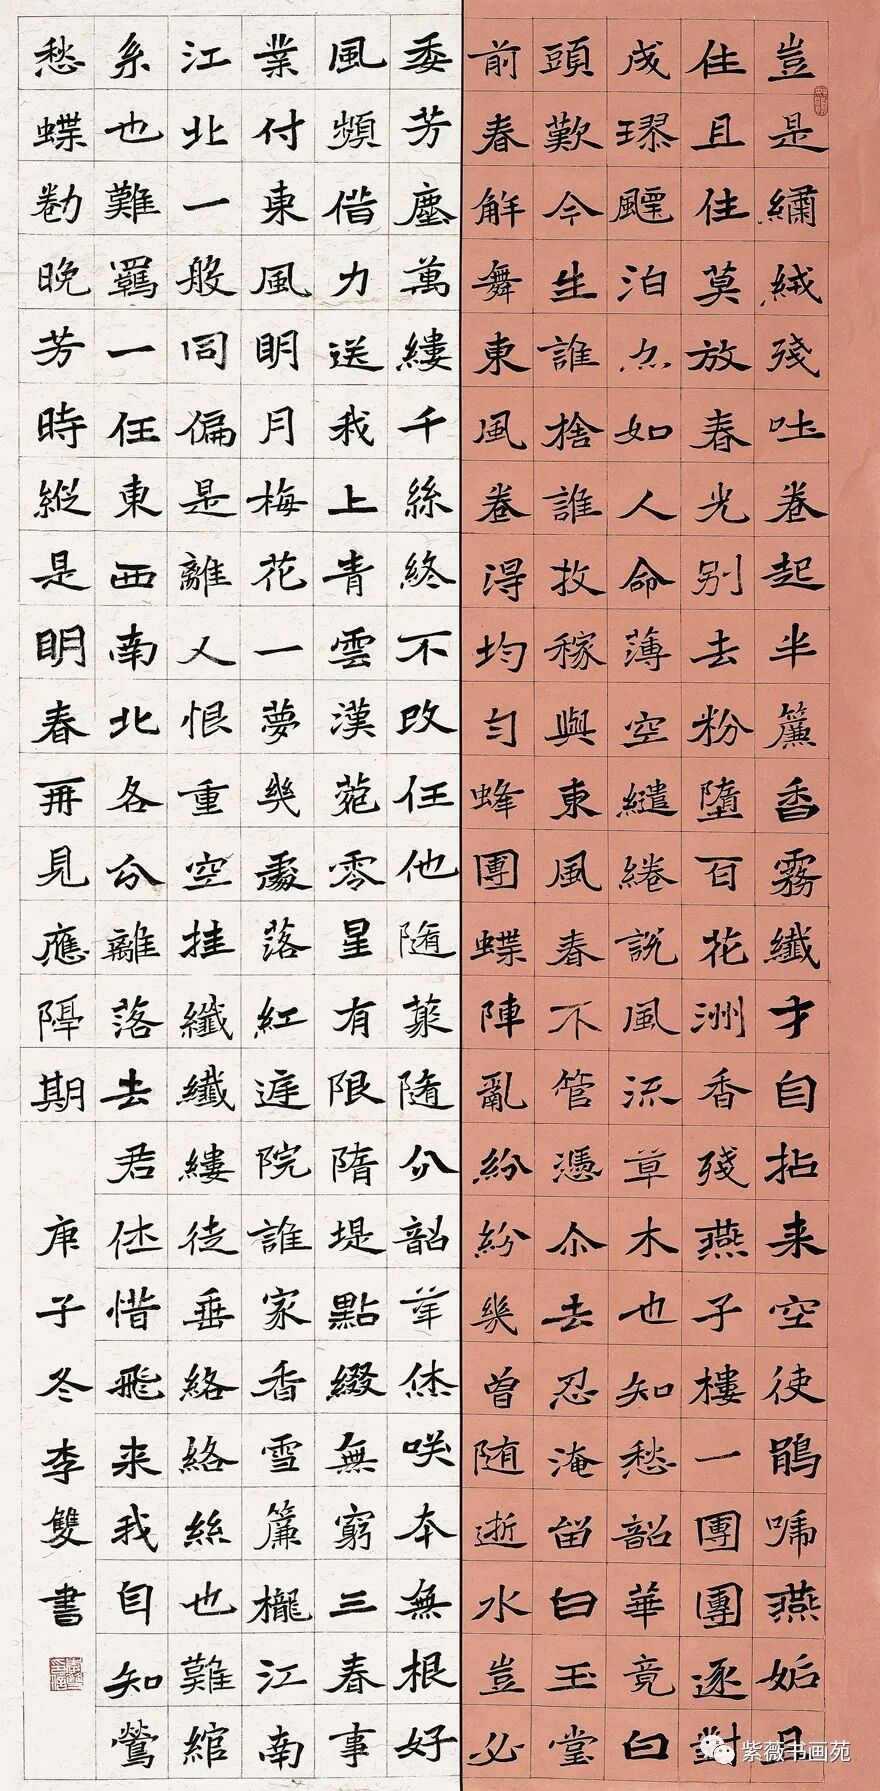 豈是繡絨殘吐卷起半簾香霧纖才自拈来空使鵑啼燕妬且
住且住莫放春光别去粉墮百花洲香殘燕子樓一團團逐對
成璆飄泊亦如人命薄空繾綣説風流草木也知愁韶華竟白
頭歎今生誰捨誰收稼與東風春不管憑尒去忍淹留白玉堂
前春解舞東風卷得均勻蜂團蝶陣亂紛紛幾曾随逝水豈必
委芳塵萬縷千絲終不改任他随聚隨分韶華休咲本無根好
風頻借力送我上青雲漢苑零星有限隋堤點綴無窮三春事
業付東風明月梅花一夢幾處落紅庭院誰家香雪簾櫳江南
江北一般同偏是離人恨重空挂纖纖縷徒垂絡絡絲也難綰
系也難羈一任東西南北各分離落去君休惜飛来我自知鶯
愁蝶勌晚芳時縱是明春再見應隔期
庚子冬李雙書
紫薇书画苑